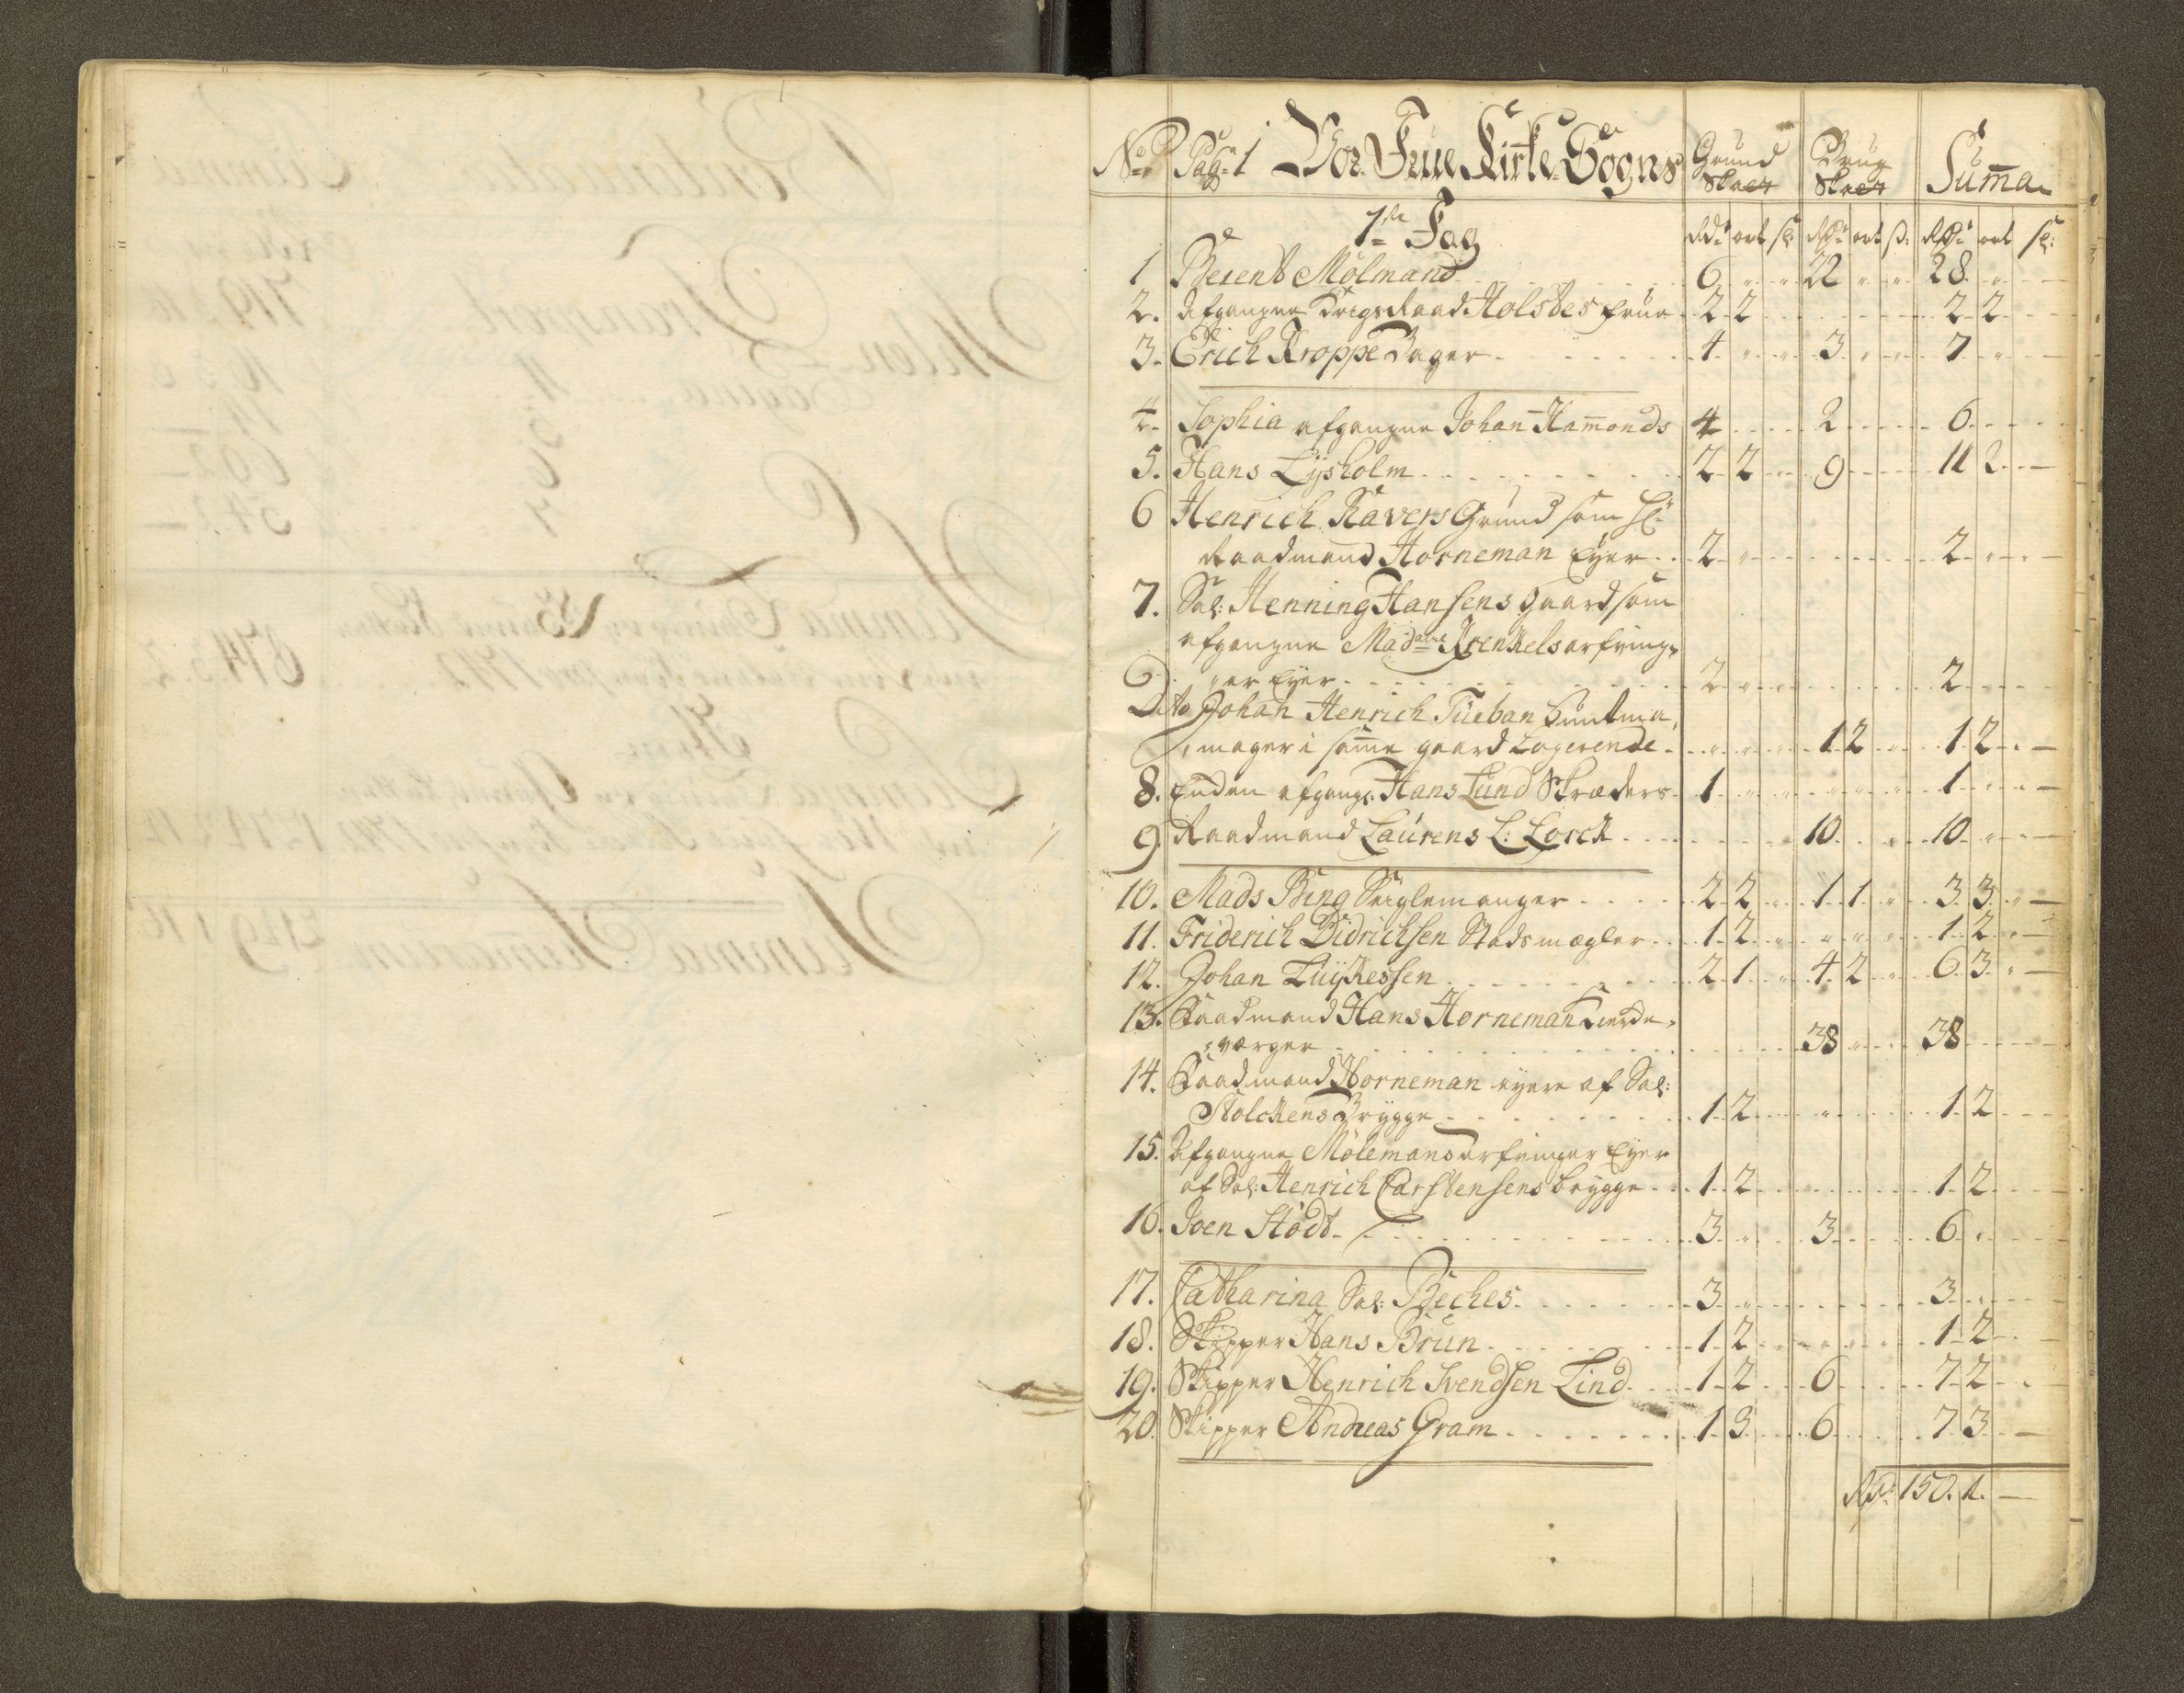 No Pag: 1 Vor Frue Kirke Sogns Grund Skatt Brug Skatt Summa
1te Fag Rdr ort sl: Rdr ort s: Rdr ort sl:
1 Berent Mølmand 6 22 28
2. Afgangne Krigsraad Holstes frue 2 2 2 2
3. Erich Kroppe Bager 4 3 7
4. Sophia afgangne Johan Hamonds 4 2 6
5. Hans Lysholm 2 2 9 11 2
6 Henrich Ravers Grund som Hr
Raadmand Horneman Eyer 2 2
7. Sal: Henning Hansens gaard som
afgangne Madame Krenkels arfving,
,er Eyer 2 2
Dito Johan Henrich Tüeban Buntma,
,mager i samme gaard Logerende 1 2 1 2
8. Enken afgangs: Hans Lund Skræders 1 1
9. Raadmand Laurens L: Lorck 10 10
10. Mads Bing Seiglemanger 2 2 1 1 3 3
11. Friderich Didrichsen Stadsmægler 1 2 1 2
12. Johan Luykessen 2 1 4 2 6 3
13. Raadmand Hans Horneman
værger 38 38
14. Raadmand Horneman eyere af Sal:
Stolckens Brygge 1 2 1 2
15. Afgangne Mølemans arfvinger Eyer
af Sal: Henrich Carstensens brygge 1 2 1 2
16. Joen Stödt 3 3 6
17. Catharina Sal: Beches 3 3
18. Skipper Hans Brun 1 2 1 2
19. Skipper Henrich Svendsen Lind 1 2 6 7 2
20. Skipper Andreas Gram 1 3 6 7 3
Rdr 150. 1. —